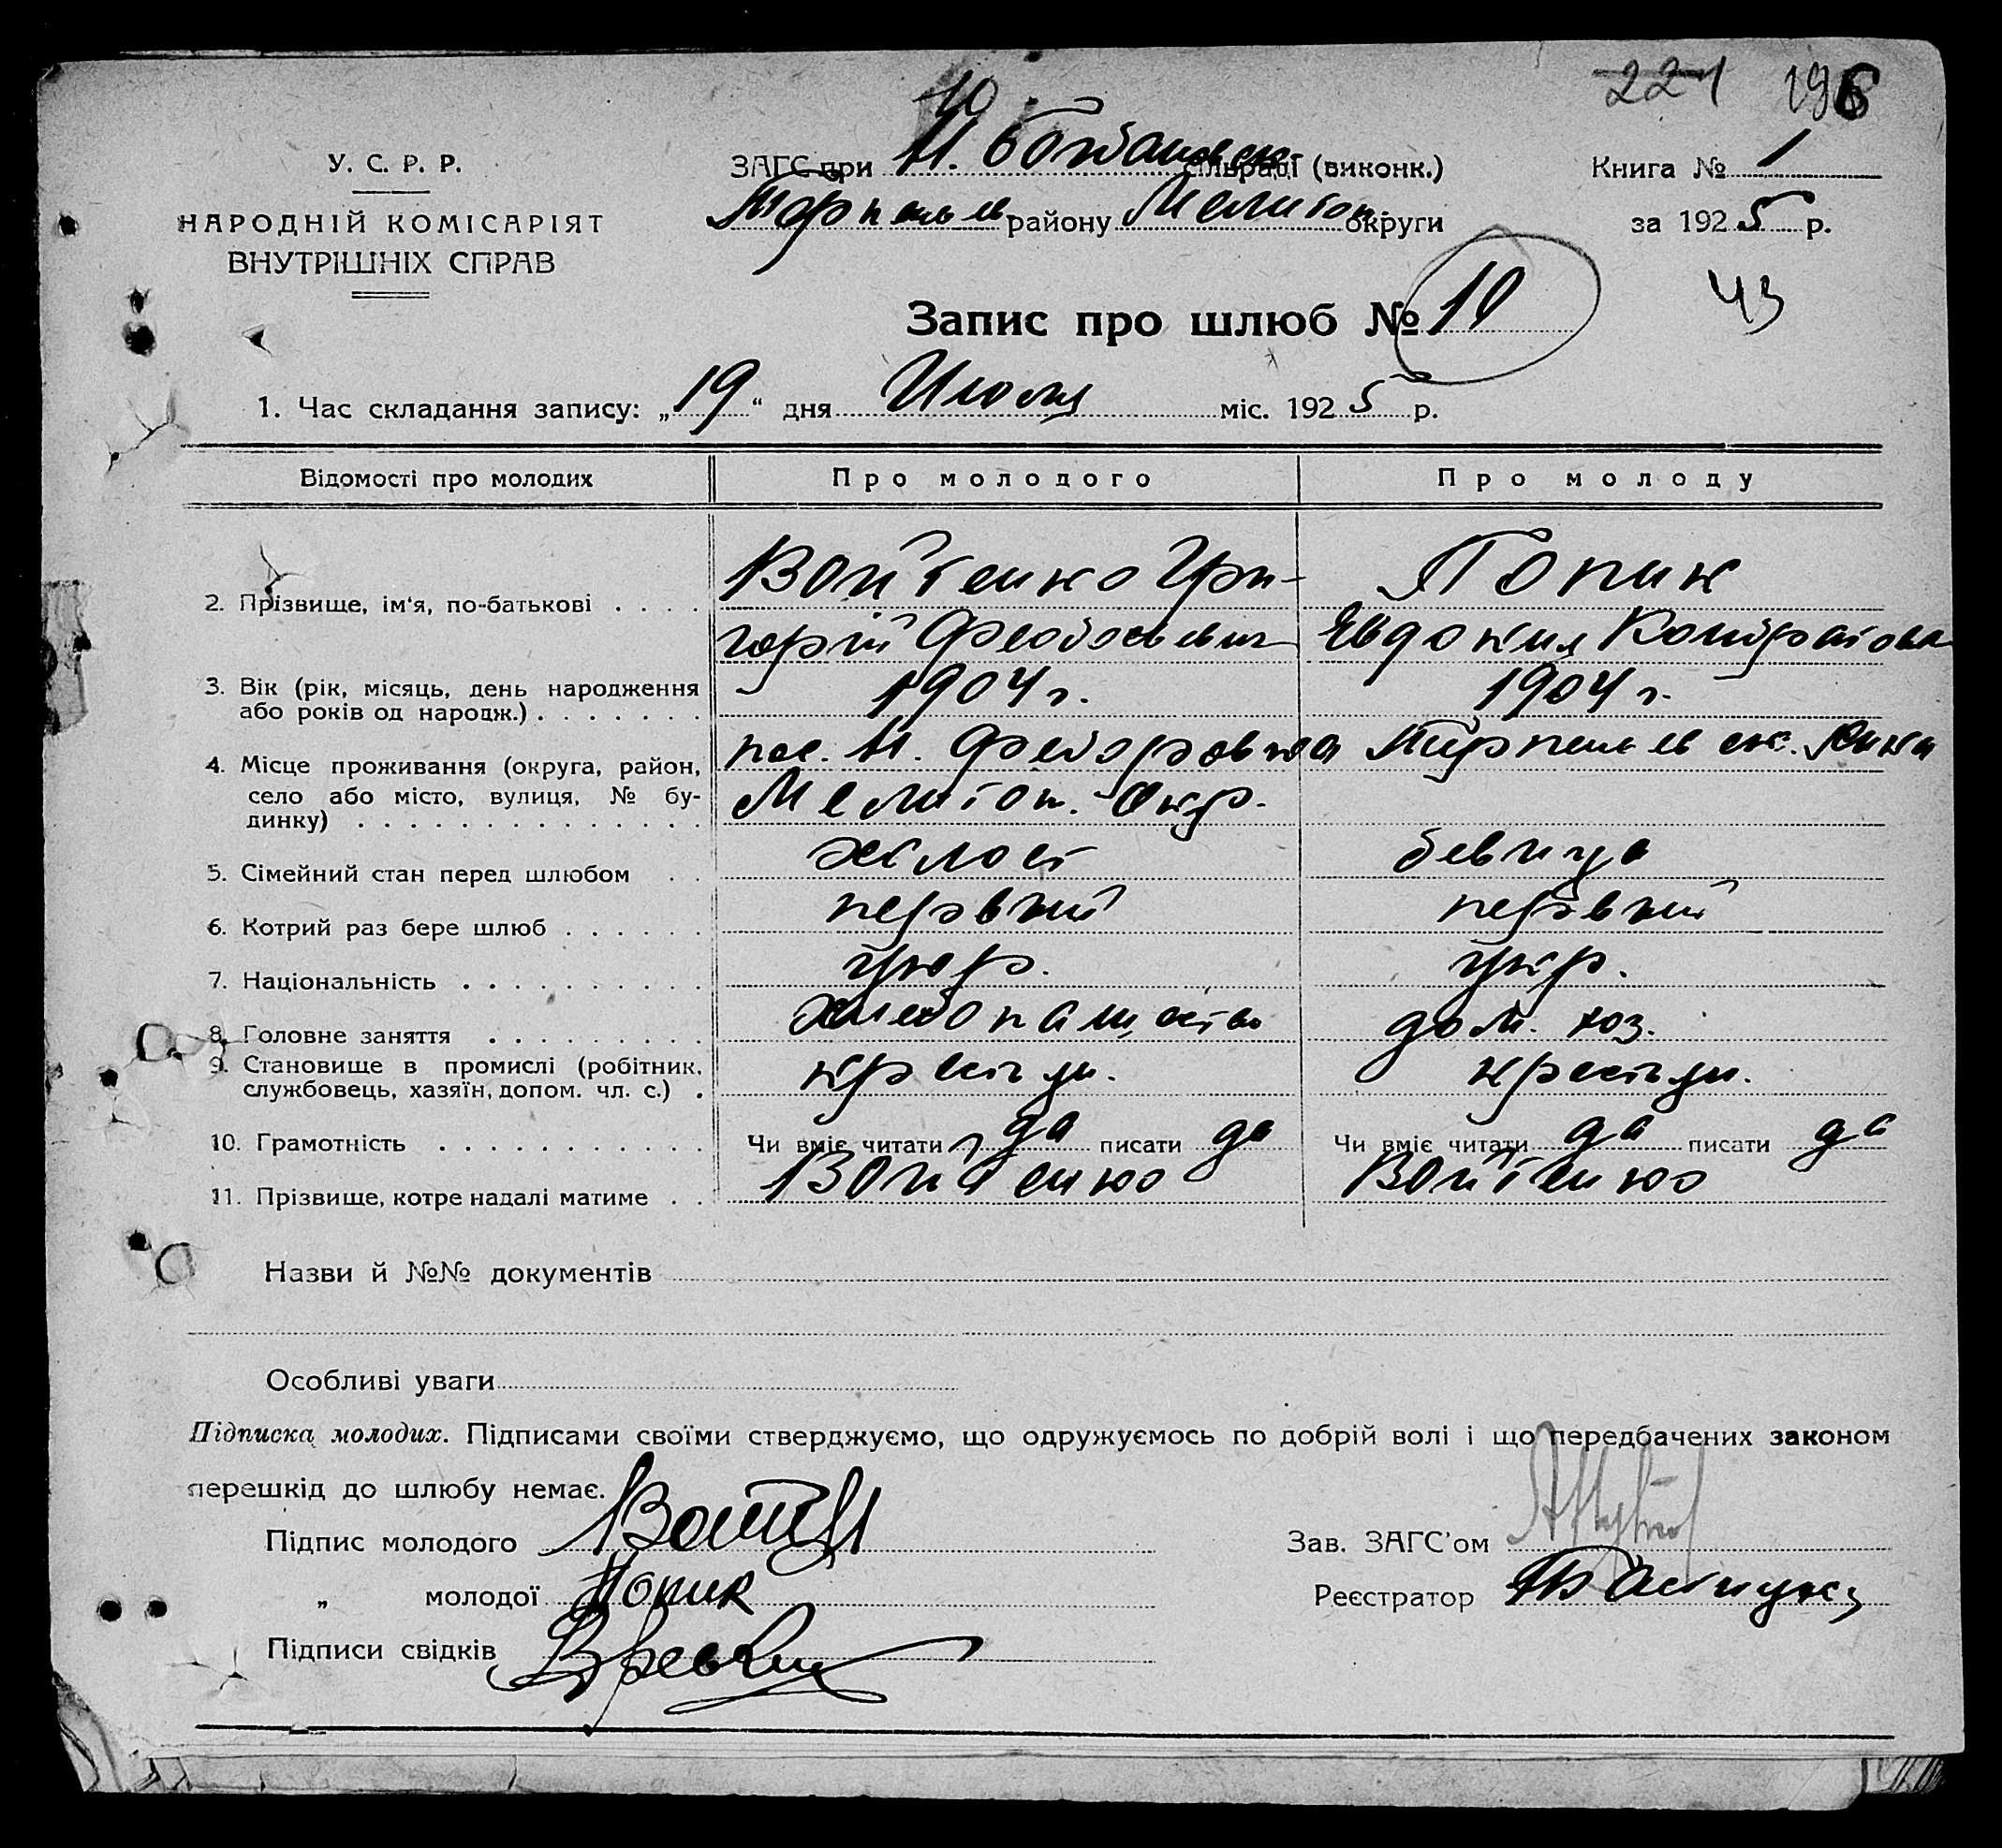 221 196
10
У. С. Р. Р.
ЗАГС при Н. Богдановск. сільраді (виконк.)
Книга № 1
НАРОДНІЙ КОМІСАРІЯТ
району Мелитоп. округи
за 1925 р.
ВНУТРІШНІХ СПРАВ
Запис про шлюб № 10
43
1. Час складання запису: „19" дня Июля міс. 1925 р.
Відомості про молодих Про молодого Про молоду
2. Прізвище, ім'я, по-батькові . . . .
Войтенко Гри-
горій Феодосьевич
Попик
Евдокия Кондратовн
3. Вік (рік, місяць, день народження
або років од народж.) . . . . . . .
1904 г. 1904 г.
4. Місце проживання (округа, район,
село або місто, вулиця, № бу-
динку) . . . . . . . . . . . . . .
пос. Н. Федоровка
Мелитоп. Окр.
5. Сімейний стан перед шлюбом . . холост девица
6. Котрий раз бере шлюб . . . . . . первый первый
7. Національність . . . . . . . . . . укр. укр.
8. Головне заняття . . . . . . . . . хлебопашество дом. хоз.
9. Становище в промислі (робітник,
службовець, хазяїн, допом. чл. с.) .
крестьян. крестьян.
10. Грамотність . . . . . . . . . . . Чи вміє читати да писати да Чи вміє читати да писати да
11. Прізвище, котре надалі матиме . . Войтенко Войтенко
Назви й №№ документів
Особливі уваги
Підписка молодих. Підписами своїми стверджуємо, що одружуємось по добрій волі і що передбачених законом
перешкід до шлюбу немає.
Підпис молодого
Зав. ЗАГС'ом
„ молодої Попик
Реєстратор
Підписи свідків